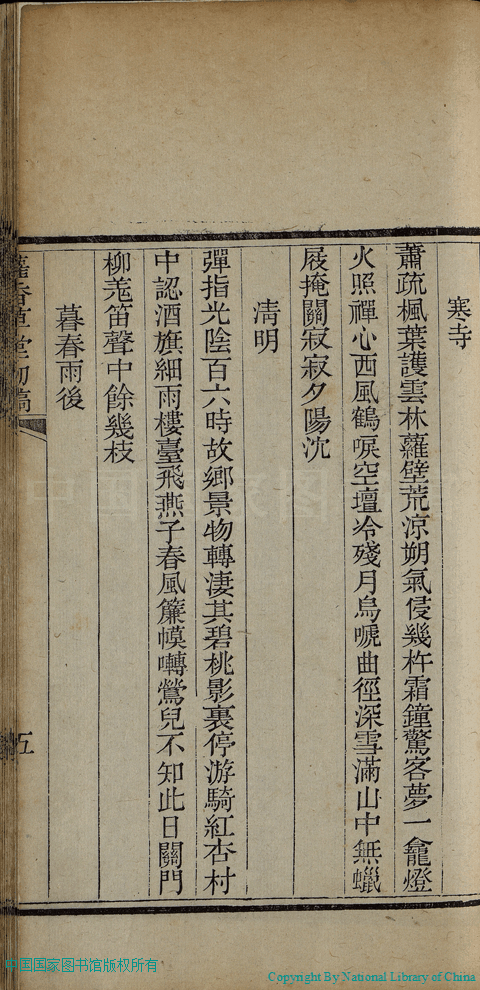 寒寺
蕭疏楓葉護雲林蘿壁荒涼朔氣侵幾杵霜鐘驚客夢一龕燈
火照禪心西風鶴唳空壇冷殘月烏嗁曲徑深雪滿山中無蠟
屐掩關寂寂夕陽沈
淸明
彈指光陰百六時故鄉景物轉淒其碧桃影裏停游騎紅杏村
中認酒旗細雨樓臺飛燕子春風簾幙囀鶯兒不知此日關門
柳羗笛聲中餘幾枝
暮春雨後
香草堂初稿
五
中国国家图书馆版权所有
Copyright By National Library of China